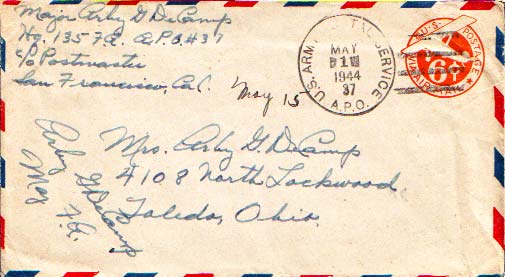 Major Arby G DeCamp
Hq. 135 F.A. A.P.O. #37
c/o Postmaster
San Francisco, Cal.
May 15
U.S. ARMY POSTAL SERVICE
MAY
1944
37
A.P.O.
U.S. POSTAGE
VIA AIR MAIL
6¢
Mrs. Arby G. DeCamp
4108 North Lockwood
Toledo, Ohio.
Arby G DeCamp
Maj F.A.